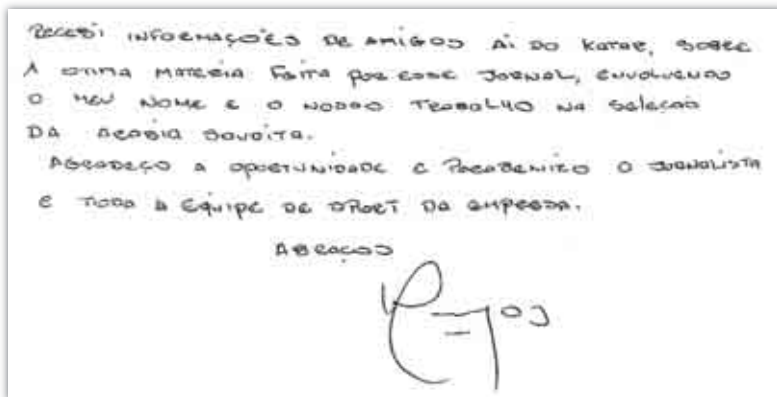 RECEBI INFORMAÇÕES DE AMIGOS AÍ DO KATAR, SOBRE
A OTIMA MATERIA FEITA POR ESSE JORNAL, ENVOLVENDO
O MEU NOME E O NOSSO TRABALHO NA SELEÇÃO
DA ARABIA SAUDITA.
AGRADEÇO A OPORTUNIDADE E PARABENIZO O JORNALISTA
E TODA A EQUIPE DE SPORT DA EMPRESA.
ABRAÇOS